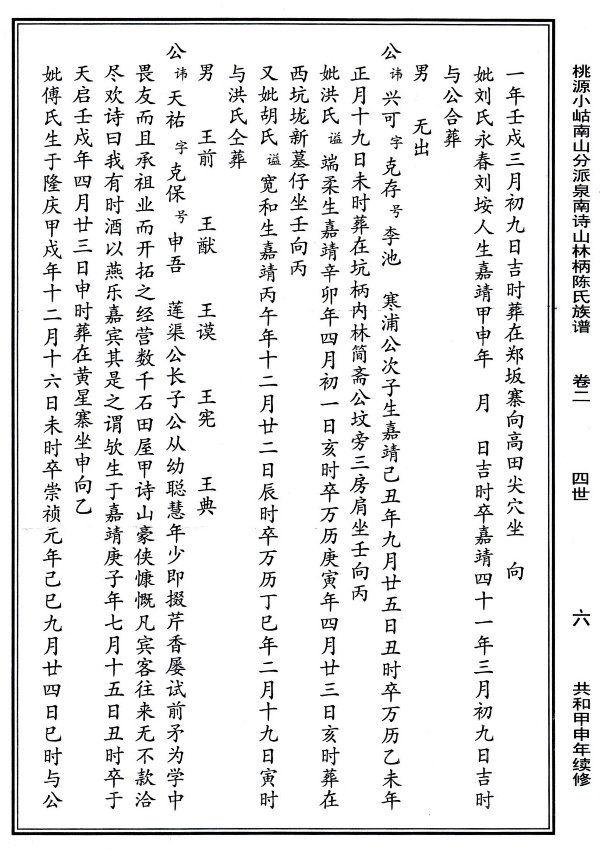 桃源小岵南山分派泉南诗山林柄陈氏族谱 卷二 四世 六 共和甲申年续修
一年壬戌三月初九日吉时葬在郑坂寨向高田尖穴坐 向
妣刘氏永春刘垵人生嘉靖甲申年 月 日吉时卒嘉靖四十一年三月初九日吉时
与公合葬
男 无出
公 讳 兴可 字 克存 号 李池 寒浦公次子生嘉靖己丑年九月廿五日丑时卒万历乙未年
正月十九日未时葬在坑柄内林简斋公坟旁三房肩坐壬向丙
妣洪氏 谥 端柔生嘉靖辛卯年四月初一日亥时卒万历庚寅年四月廿三日亥时葬在
西坑垅新墓仔坐壬向丙
又妣胡氏 谥 宽和生嘉靖丙午年十二月廿二日辰时卒万历丁巳年二月十九日寅时
与洪氏仝葬
男 王前 王猷 王谟 王宪 王典
公 讳 天祐 字 克保 号 申吾 莲渠公长子公从幼聪慧年少即掇芹香屡试前矛为学中
畏友而且承祖业而开拓之经营数千石田屋甲诗山豪侠慷慨凡宾客往来无不款洽
尽欢诗曰我有时酒以燕乐嘉宾其是之谓欤生于嘉靖庚子年七月十五日丑时卒于
天启壬戌年四月廿三日申时葬在黄星寨坐申向乙
妣傅氏生于隆庆甲戌年十二月十六日未时卒崇祯元年己巳九月廿四日巳时与公